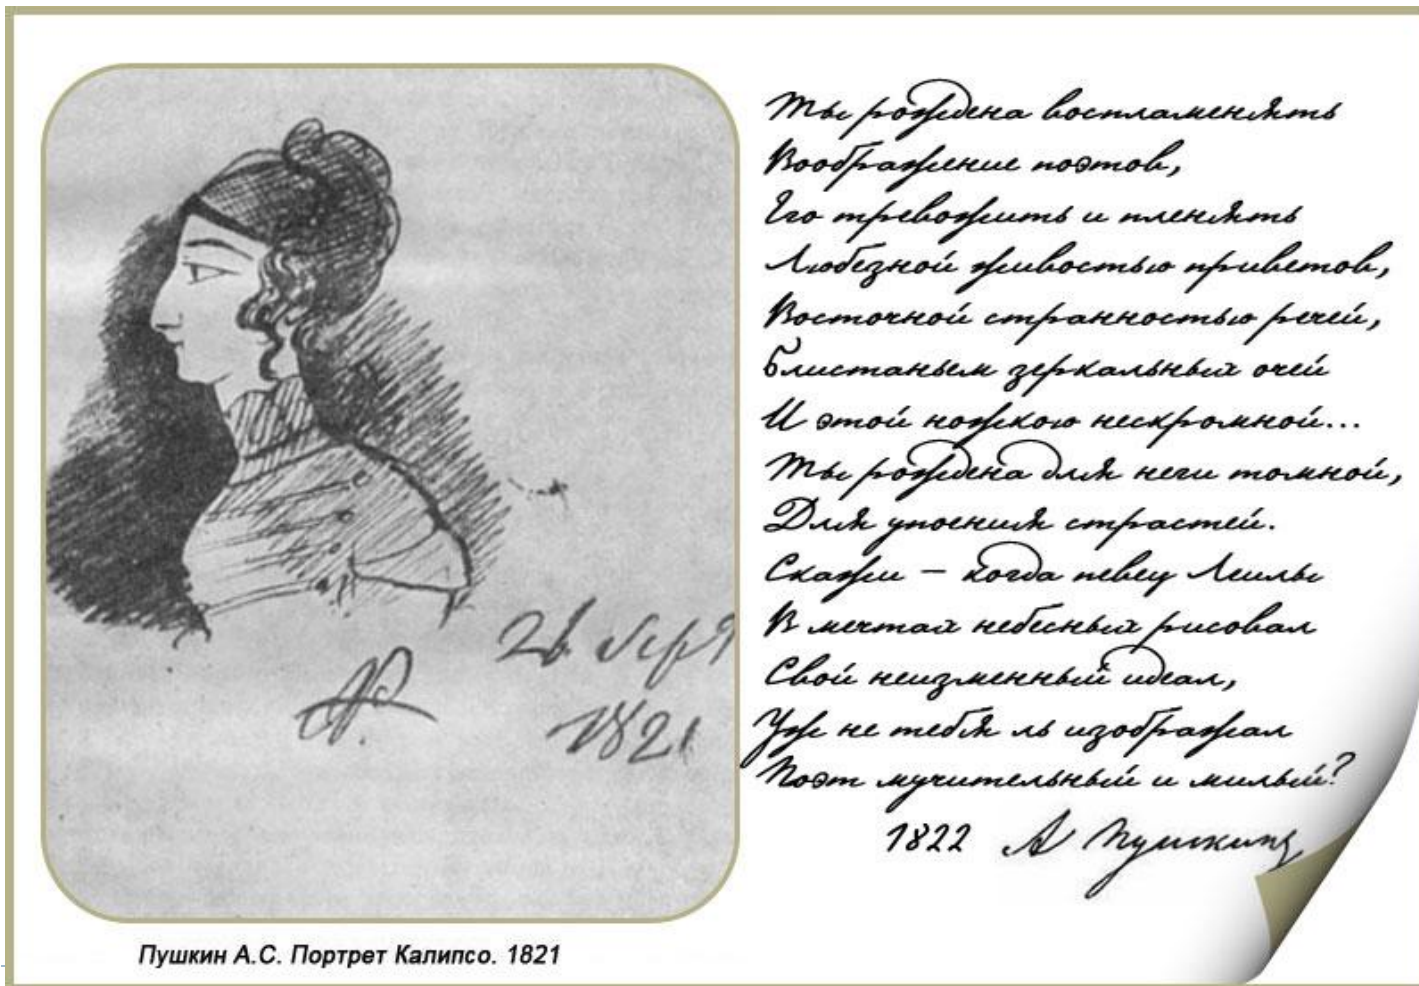 Ты рождена воспламенять
Воображение поэтов,
Его тревожить и пленять
Любезной живостью приветов,
Восточной странностью речей,
Блистаньем зеркальных очей
И этой ножкою нескромной...
Ты рождена для неги томной,
Для упоения страстей.
Скажи – когда певец Леилы
В мечтах небесных рисовал
Свой неизменный идеал,
Уж не тебя ль изображал
Поэт мучительный и милый?
1822 А Пушкинъ
26
1821
Пушкин А.С. Портрет Калипсо. 1821